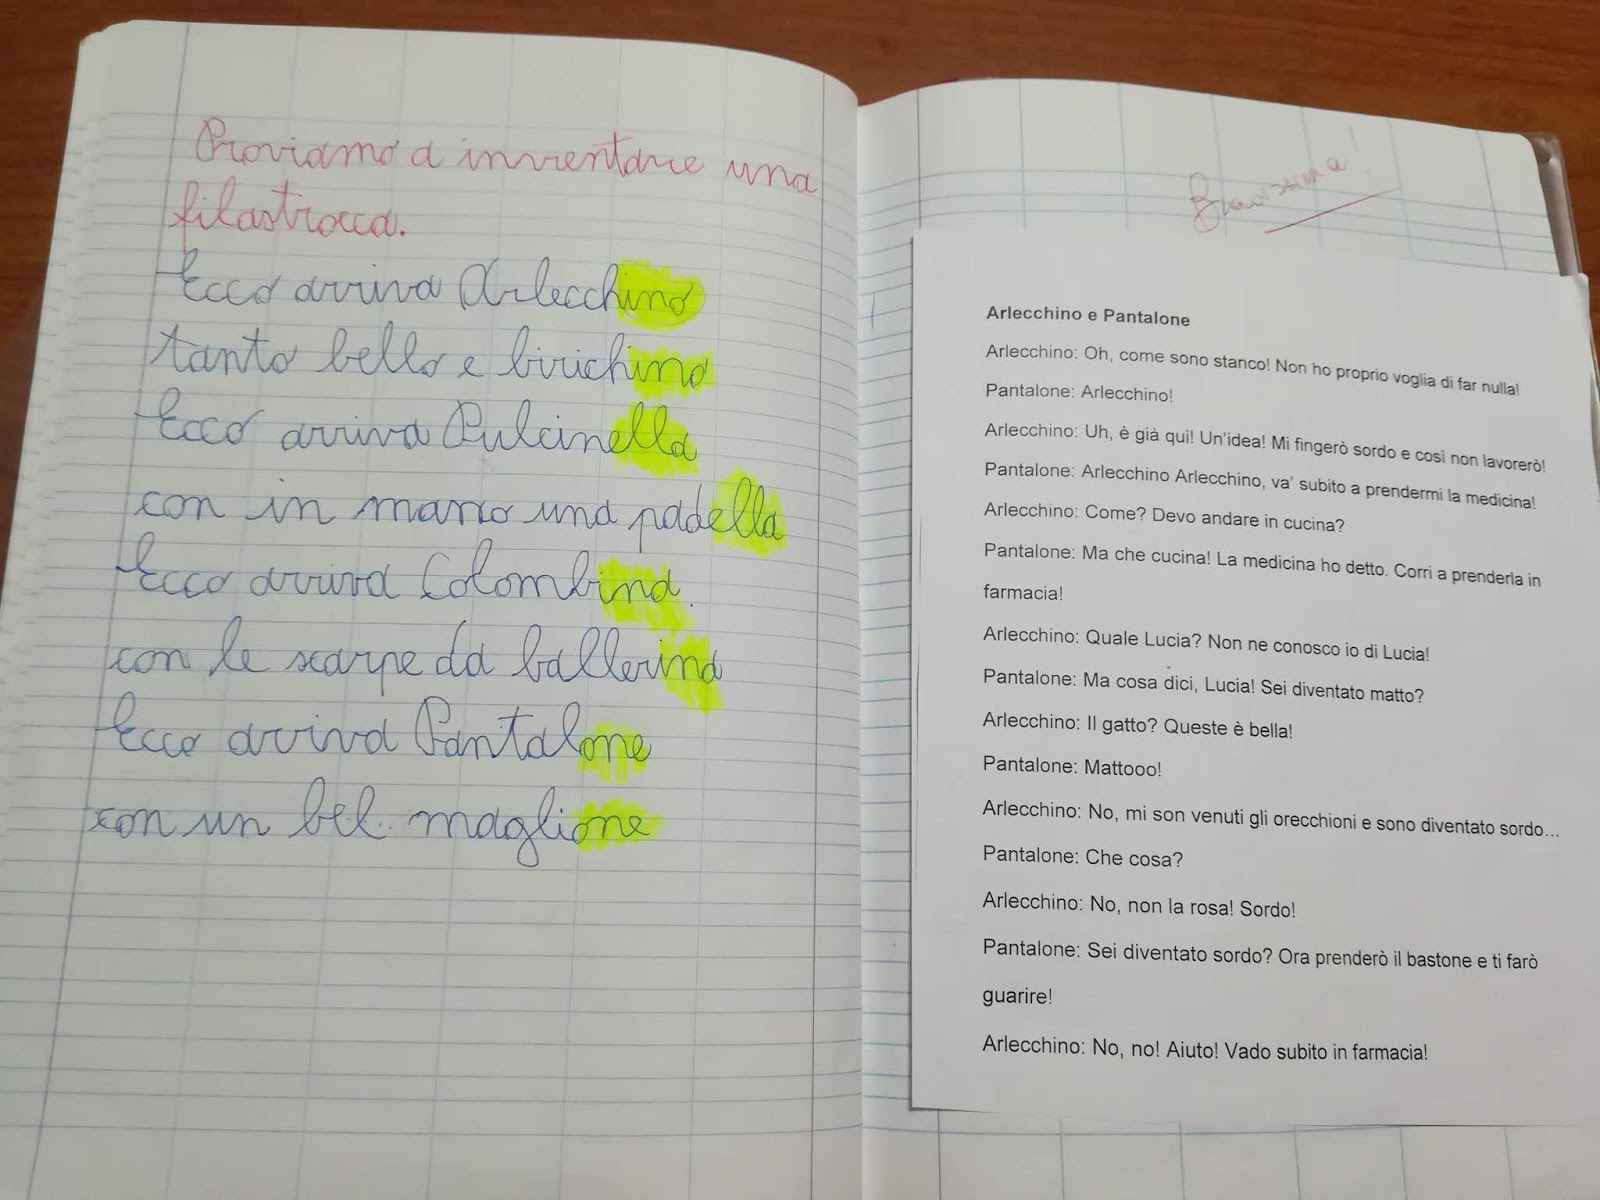 Proviamo a inventare una
filastrocca.
Ecco arriva Arlecchino
tanto bello e birichino
Ecco arriva Pulcinella
con in mano una padella
Ecco arriva Colombina.
con le scarpe da ballerina
Ecco arriva Pantalone
con un bel maglione
Bravissima!
Arlecchino e Pantalone
Arlecchino: Oh, come sono stanco! Non ho proprio voglia di far nulla!
Pantalone: Arlecchino!
Arlecchino: Uh, è già qui! Un'idea! Mi fingerò sordo e così non lavorerò!
Pantalone: Arlecchino Arlecchino, va' subito a prendermi la medicina!
Arlecchino: Come? Devo andare in cucina?
Pantalone: Ma che cucina! La medicina ho detto. Corri a prenderla in
farmacia!
Arlecchino: Quale Lucia? Non ne conosco io di Lucia!
Pantalone: Ma cosa dici, Lucia! Sei diventato matto?
Arlecchino: Il gatto? Queste è bella!
Pantalone: Mattooo!
Arlecchino: No, mi son venuti gli orecchioni e sono diventato sordo...
Pantalone: Che cosa?
Arlecchino: No, non la rosa! Sordo!
Pantalone: Sei diventato sordo? Ora prenderò il bastone e ti farò
guarire!
Arlecchino: No, no! Aiuto! Vado subito in farmacia!